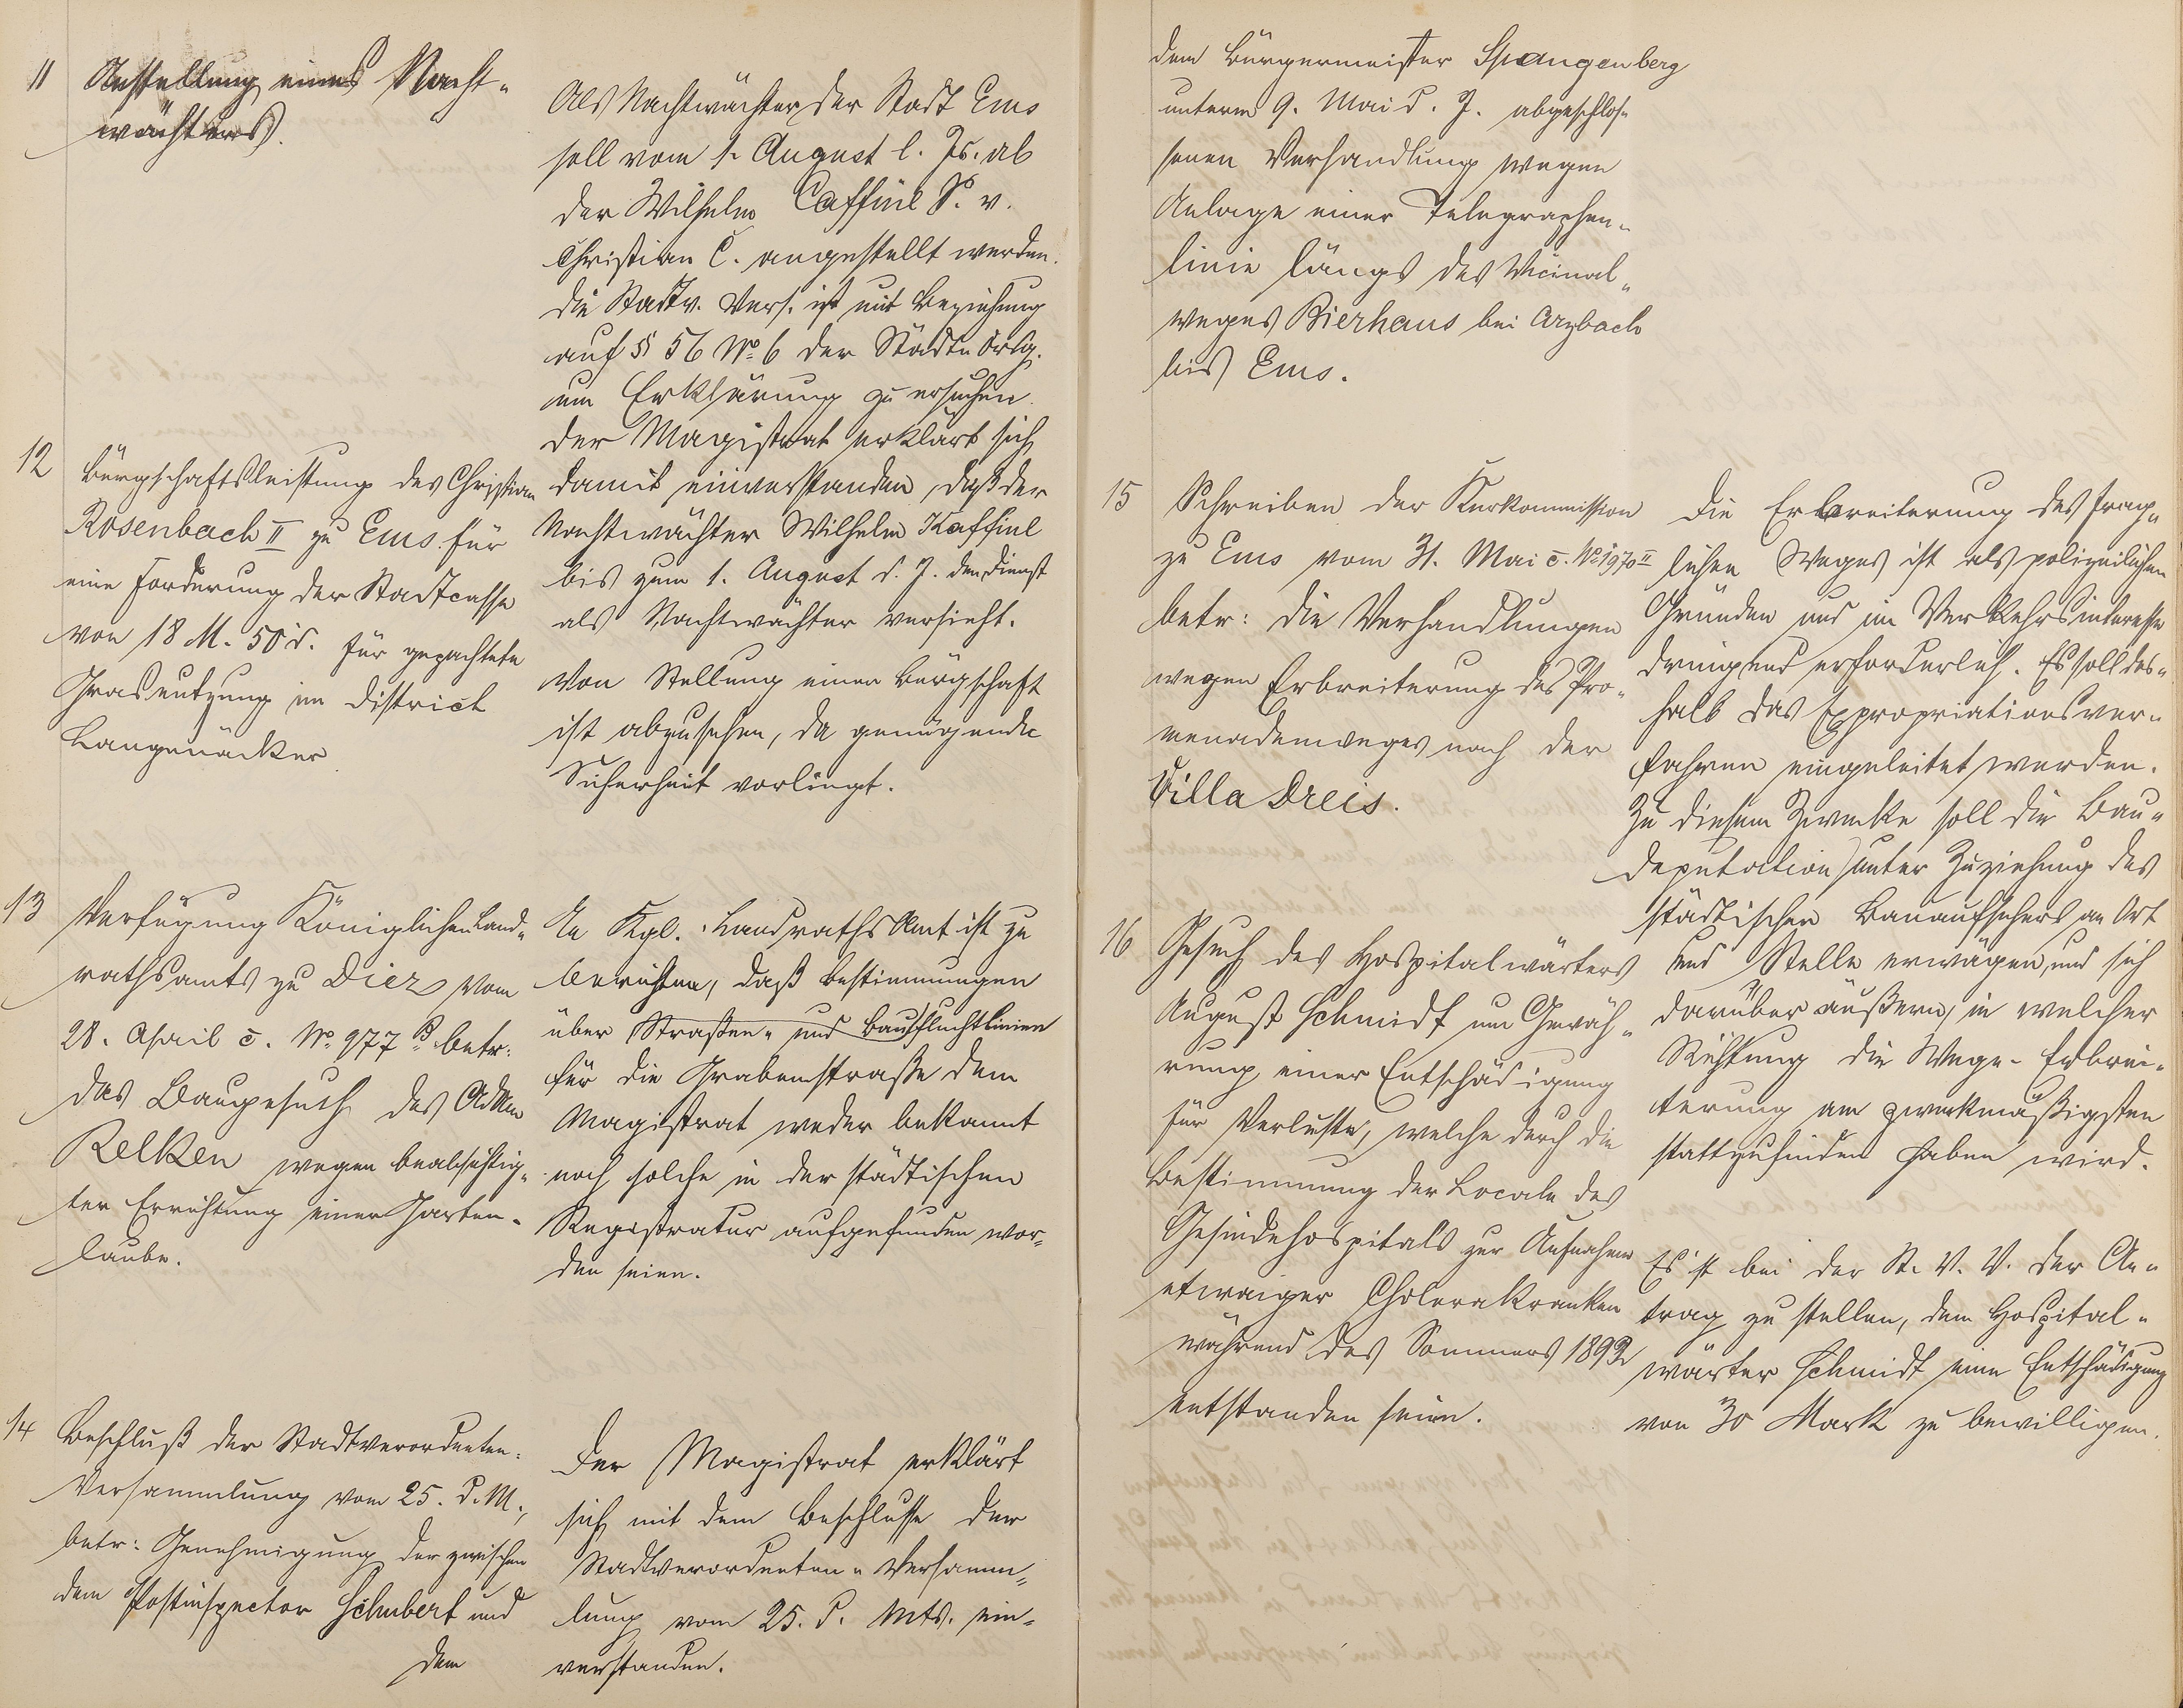 11 Anstellung eines Nacht-
wächters.
Als Nachtwächter der Stadt Ems
soll vom 1. August l. Js. ab
der Wilhelm Caffine S. v.
Christian C. angestellt werden.
Die Stadtv. Vers. ist mit Beziehung
auf § 56 No. 6 der Städteordg.
um Erklärung zu ersuchen.
Der Magistrat erklärt sich
damit einverstanden, daß der
Nachtwächter Wilhelm Kaffine
bis zum 1. August d. J. den Dienst
als Nachtwächter versieht.
12 Bürgschaftsleistung des Christian
Rosenbach II zu Ems für
eine Forderung der Stadtcasse
von 18 M. 50 d. für gepachtete
Grasnutzung im District
Langenäcker
Von Stellung einer Bürgschaft
ist abzusehen, da genügende
Sicherheit vorliegt.
13 Verfügung Königlichen Land-
rathsamts zu Diez vom
28. April c. No. 977 B. betr.
das Baugesuch des Adam
Relken wegen beabsichtig-
ter Errichtung einer Garten-
laube.
An Kgl. Landraths Amt ist zu
berichten, daß Bestimmungen
über Straßen- und Baufluchtlinien
für die Grabenstraße dem
Magistrat weder bekannt
noch solche in der städtischen
Registratur aufgefunden wor-
den seien.
14 Beschluß der Stadtverordneten-
Versammlung vom 25. d. M.,
betr: Genehmigung der zwischen
dem Postinspector Schubert und
dem
Der Magistrat erklärt
sich mit dem Beschlusse der
Stadtverordneten-Versamm-
lung vom 25. d. Mts. ein-
verstanden.
dem Bürgermeister Spangenberg
unterm 9. Mai d. J. abgeschlos-
senen Verhandlung wegen
Anlage einer Telegraphen-
linie längs des Vicinal-
weges Bierhaus bei Arzbach
bis Ems.
15 Schreiben der Kurkommission
zu Ems vom 31. Mai c. No. 1970 II
betr: die Verhandlungen
wegen Erbreiterung des Pro-
menadenweges nach der
Villa Dreis.
Die Erbreiterung des frag-
lichen Weges ist als polizeilichen
Gründen und im Verkehrsinteresse
dringend erforderlich. Es soll des-
halb das Expropriationsver-
fahren eingeleitet werden.
Zu diesem Zwecke soll die Bau-
deputation unter Zuziehung des
städtischen Bauaufsehers an Ort
und Stelle erwägen, und sich
darüber äußern, in welcher
Richtung die Wege-Erbrei-
terung am zweckmäßigsten
stattzufinden haben wird.
16 Gesuch des Hospitalwärters
August Schmidt um Gewäh-
rung einer Entschädigung
für Verluste, welche durch die
Bestimmung der Locale des
Gesindehospitals zur Aufnahme
etwaiger Cholerakranken
während des Sommers 1892
entstanden seien.
Es ist bei der St. V. V. der An-
trag zu stellen, dem Hospital-
wärter Schmidt eine Entschädigung
von 30 Mark zu bewilligen.